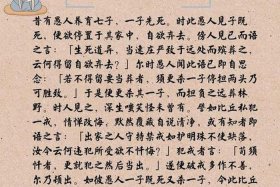 昔有愚人养育七子，一子先死。时此愚人见子既
死，便欲停置于其家中，自欲弃去。傍人见已而语
之言：「生死道异，当速庄严致于远处而殡葬之，
云何得留自欲弃去？」尔时愚人闻此语已即自思
念：「若不得留要当葬者，须更杀一子停担两头乃
可胜致。」于是便更杀其一子，而担负之远葬林
野。时人见之，深生嗤笑怪未曾有。譬如比丘私犯
一戒，情惮改悔，默然覆藏自说清净，或有知者即
语之言：「出家之人守持禁戒如护明珠不使缺落，
汝今云何违犯所受欲不忏悔？」犯戒者言：「苟须
忏者，更就犯之然后当出。」遂便破戒多作不善，
尔乃顿出。如彼愚人一子既死又杀一子，今此比